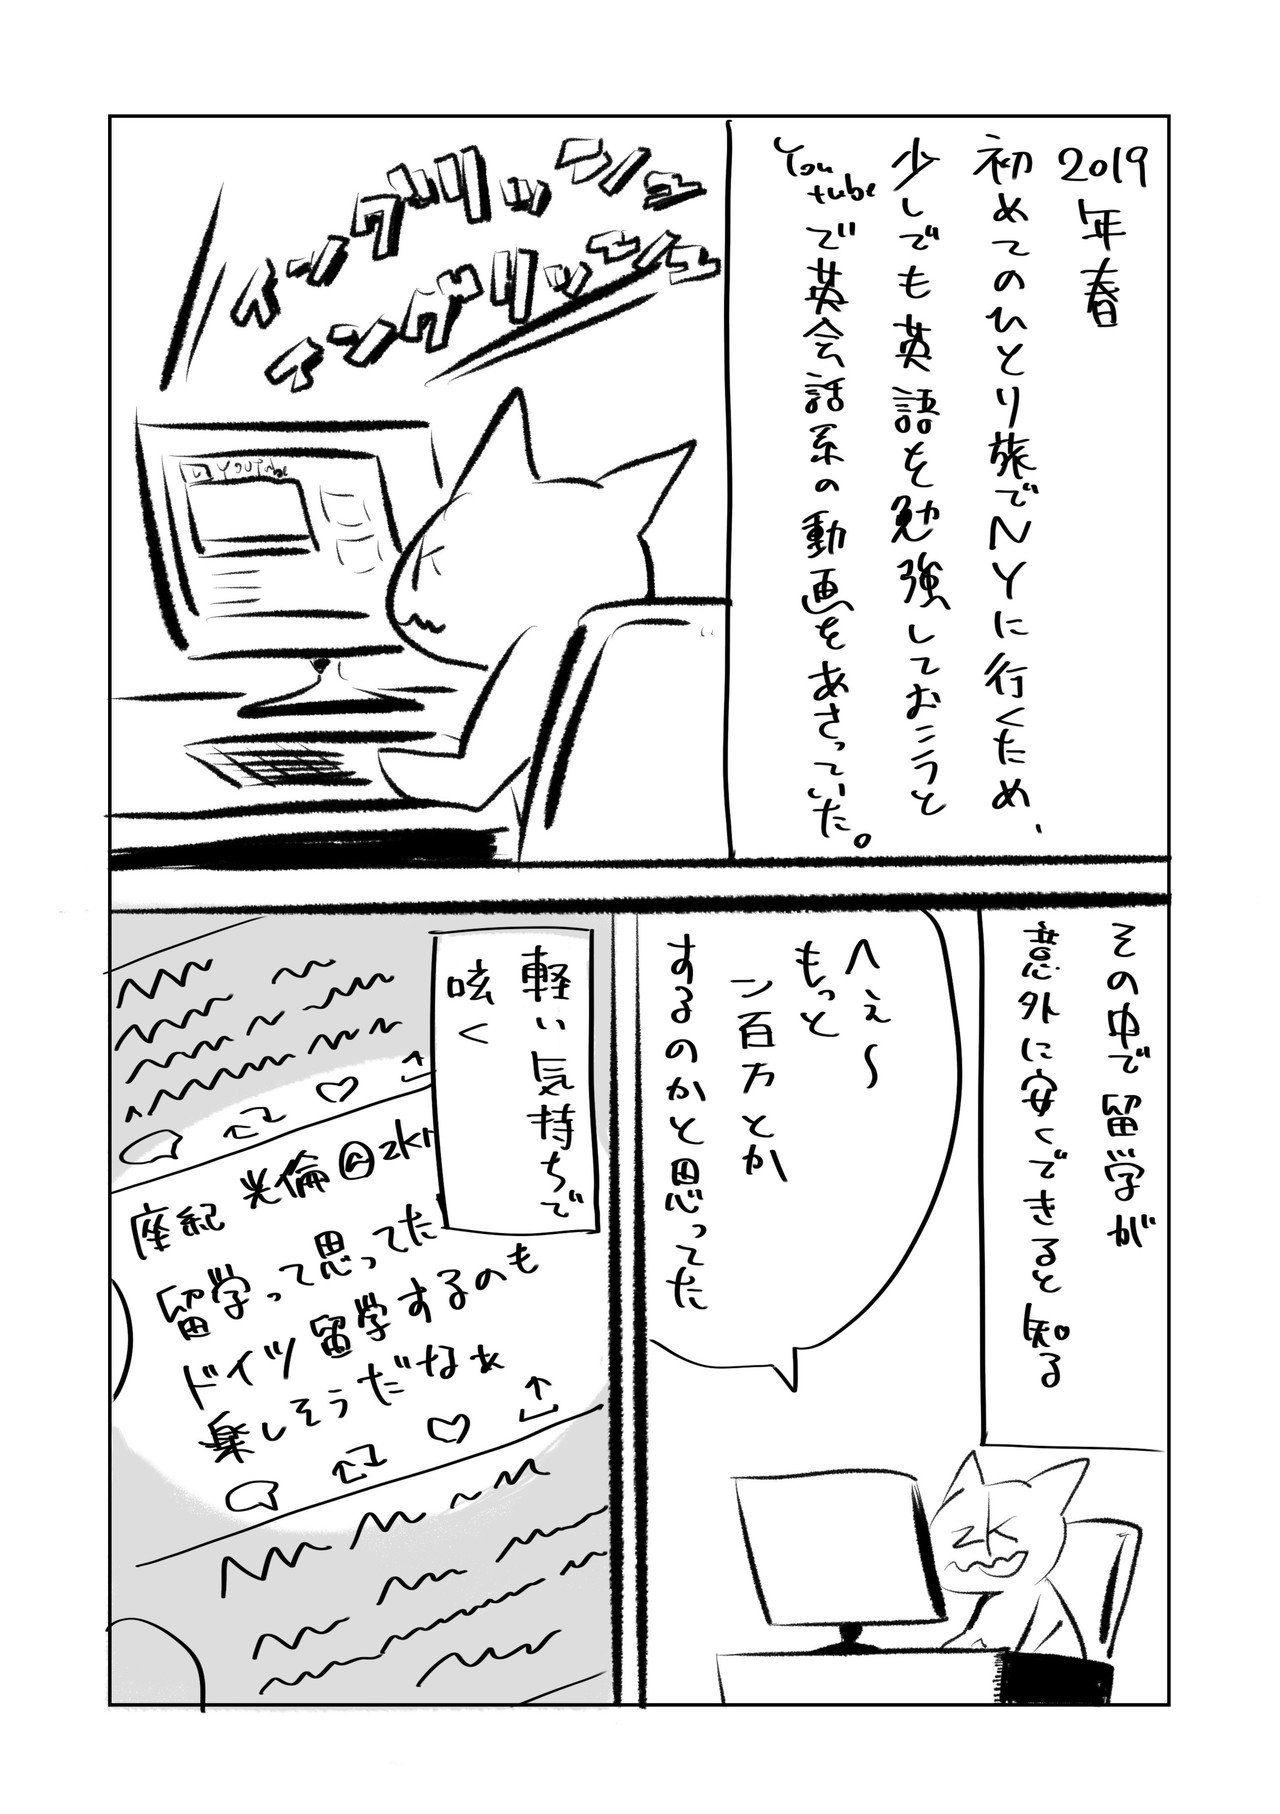 2019年春
初めてのひとり旅でNYに行くため、
少しでも英語を勉強しておこうと
Youtubeで英会話系の動画をあさっていた。
イングリッシュ
イングリッシュ
YOUTUBE
その中で留学が
意外に安くできると知る
へぇ〜
もっと
ン百万とか
するのかと思ってた
ZK
軽い気持ちで
呟く
座紀 光倫@zkr
留学って思ってた
ドイツ留学するのも
楽しそうだなぁ